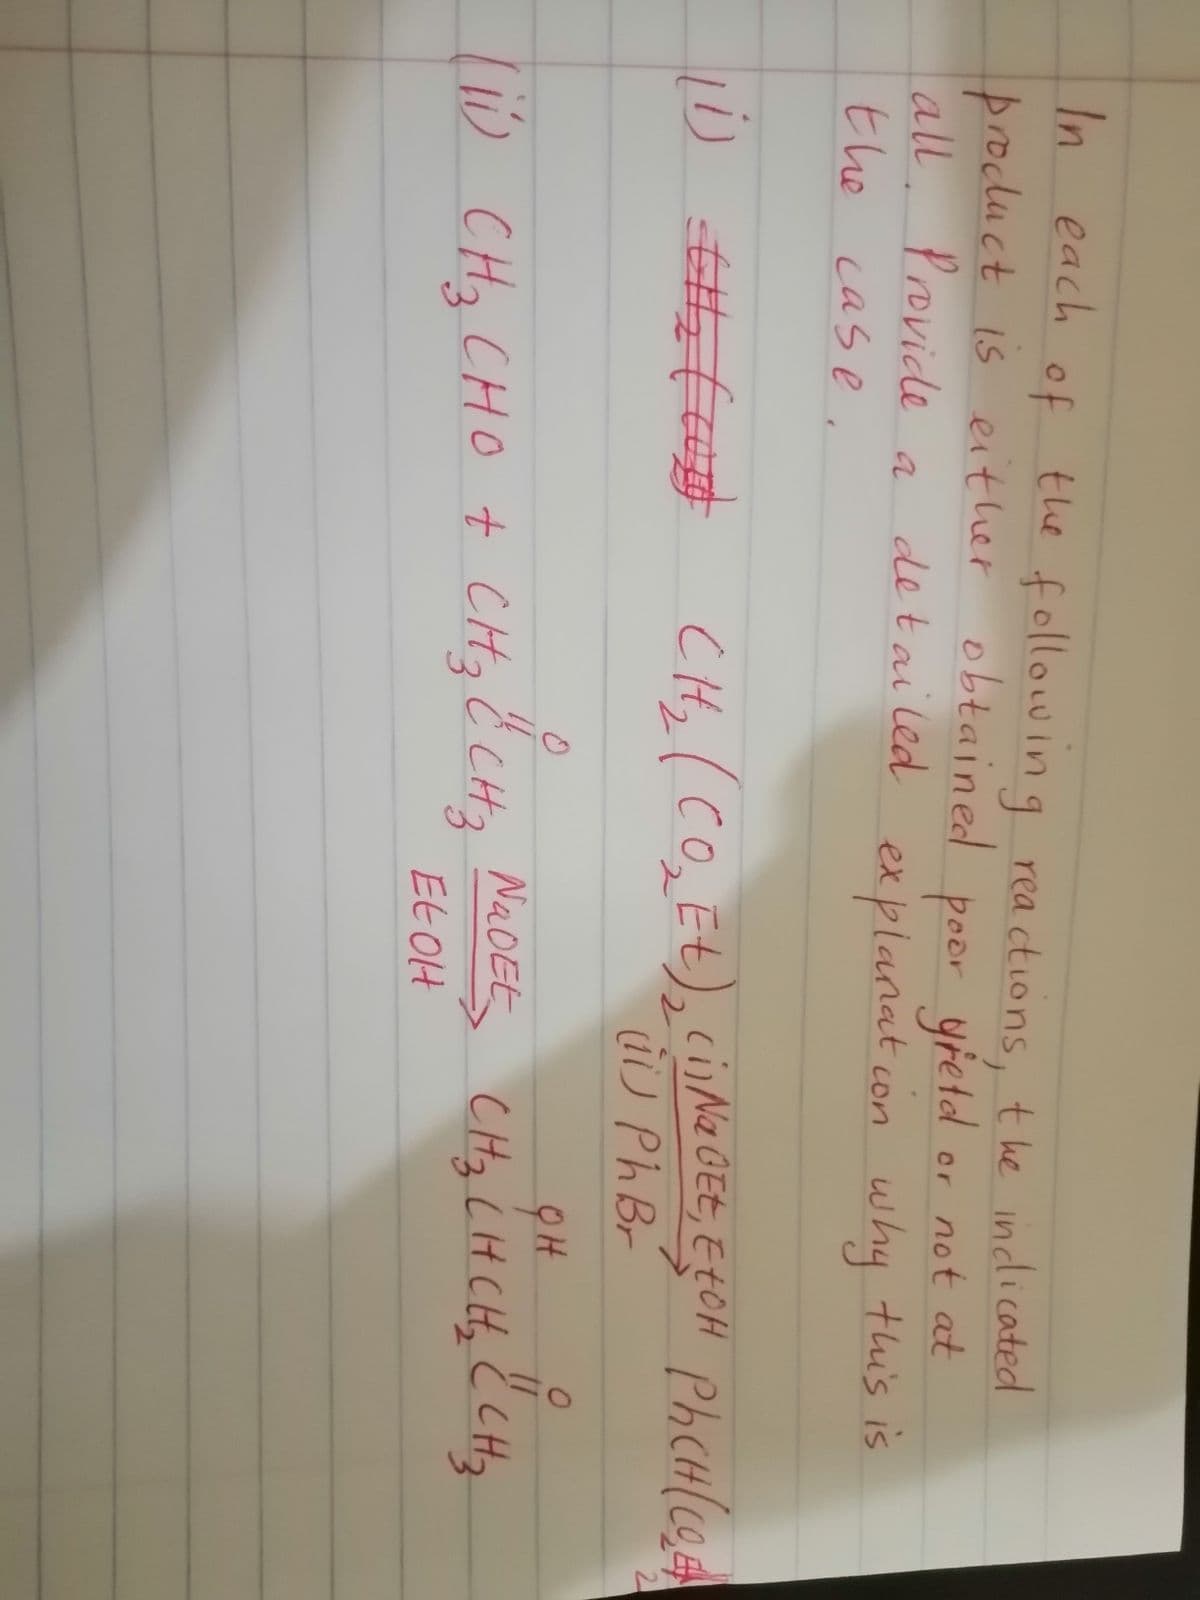 In each of the following reactions, the indicated
product is either obtained poor yield or not at
all. Provide a detailed explanation why this is
the case.
(i) CH₂(CO₂Et)₂ (i) NaOEt, EtOH PhCH(CO₂Et)₂
(ii) PhBr
O OH O
(ii) CH₃CHO + CH₃CCH₃ NaOEt CH₃CHCH₂CCH₃
EtOH